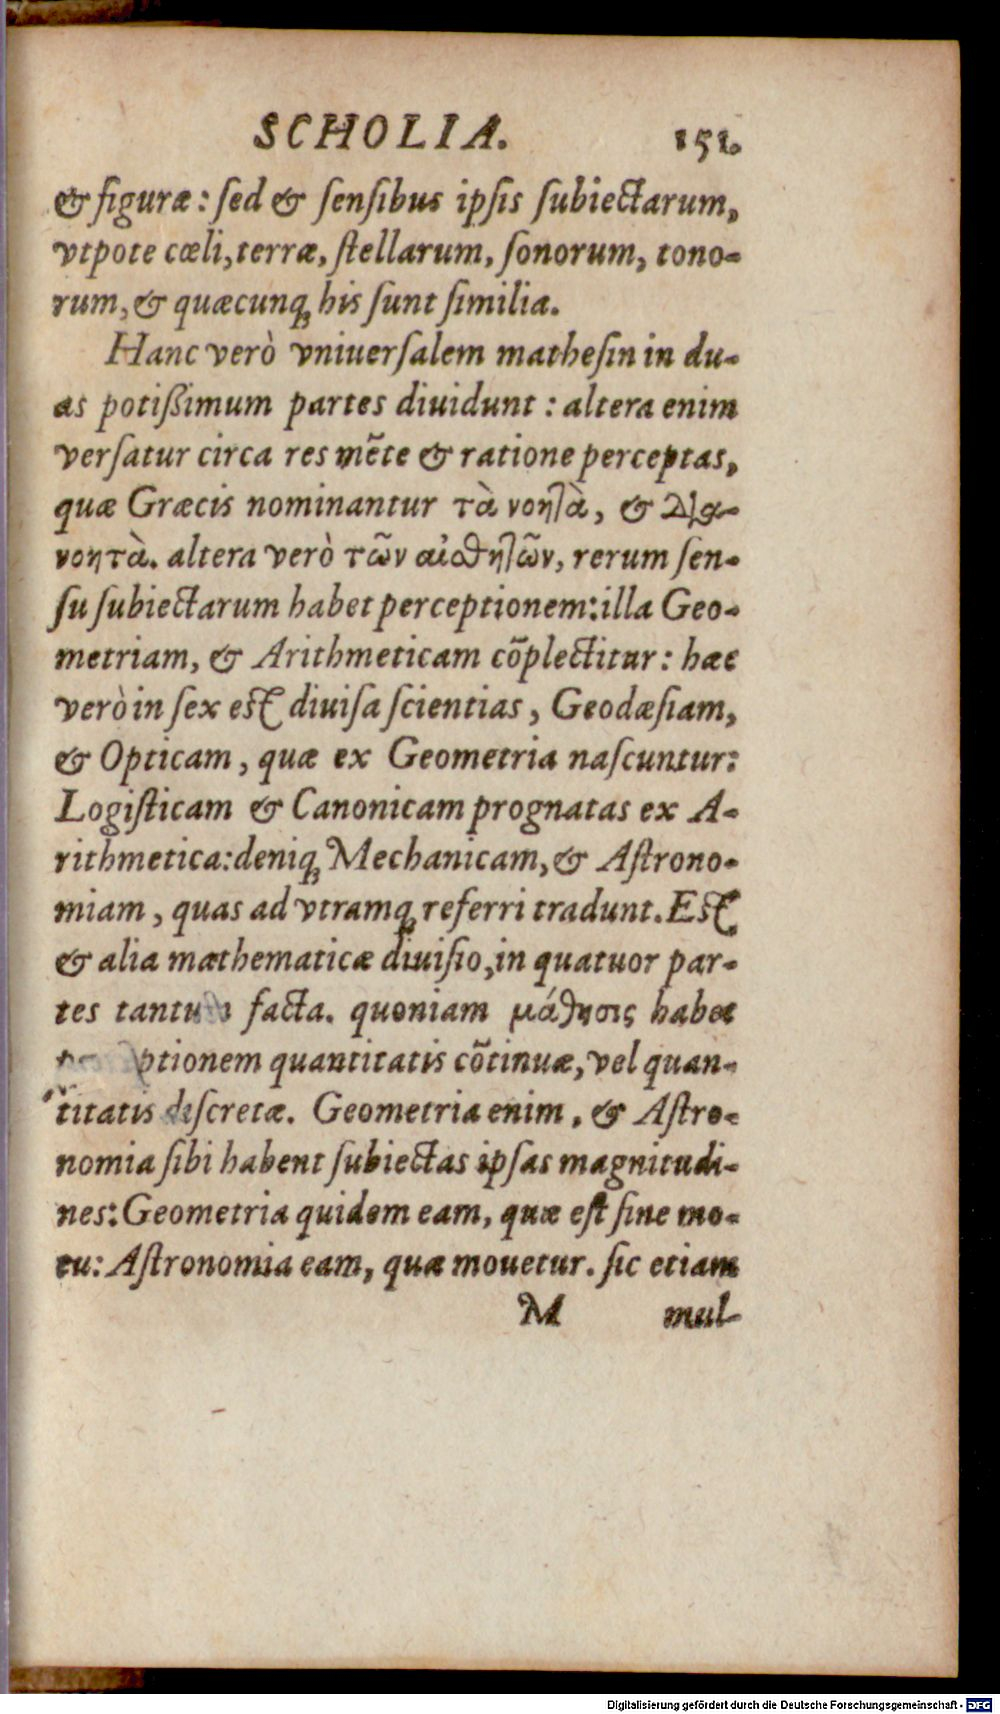 SCHOLIA. 151.
& figuræ: sed & sensibus ipsis subiectarum,
vtpote cœli, terræ, stellarum, sonorum, tono-
rum, & quæcunq; his sunt similia.
Hanc verò vniuersalem mathesin in du-
as potißimum partes diuidunt: altera enim
versatur circa res mēte & ratione perceptas,
quæ Græcis nominantur τὰ νοητὰ, & δια-
νοητὰ. altera verò τῶν αἰσθητῶν, rerum sen-
su subiectarum habet perceptionem: illa Geo-
metriam, & Arithmeticam cōplectitur: hæc
verò in sex est diuisa scientias, Geodæsiam,
& Opticam, quæ ex Geometria nascuntur:
Logisticam & Canonicam prognatas ex A-
rithmetica: deniq; Mechanicam, & Astrono-
miam, quas ad vtramq; referri tradunt. Est
& alia mathematicæ diuisio, in quatuor par-
tes tantum facta. quoniam μάθησις habet
ptionem quantitatis cōtinuæ, vel quan-
titatis discretæ. Geometria enim, & Astro-
nomia sibi habent subiectas ipsas magnitudi-
nes: Geometria quidem eam, quæ est sine mo-
tu: Astronomia eam, quæ mouetur. sic etiam
M mul-
Digitalisierung gefördert durch die Deutsche Forschungsgemeinschaft - DFG